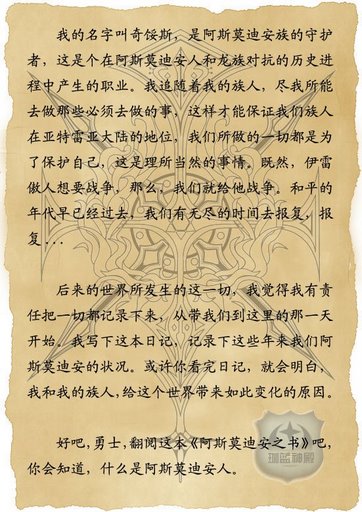 我的名字叫奇馁斯，是阿斯莫迪安族的守护
者，这是个在阿斯莫迪安人和龙族对抗的历史进
程中产生的职业。我追随着我的族人，尽我所能
去做那些必须去做的事，这样才能保证我们族人
在亚特雷亚大陆的地位，我们所做的一切都是为
了保护自己，这是理所当然的事情。既然，伊雷
傲人想要战争，那么，我们就给他战争。和平的
年代早已经过去，我们有无尽的时间去报复，报
复...
后来的世界所发生的这一切，我觉得我有责
任把一切都记录下来，从带我们到这里的那一天
开始。我写下这本日记，记录下这些年来我们阿
斯莫迪安的状况。或许你看完日记，就会明白，
我和我的族人,给这个世界带来如此变化的原因。
好吧,勇士,翻阅这本《阿斯莫迪安之书》吧,
你会知道，什么是阿斯莫迪安人。